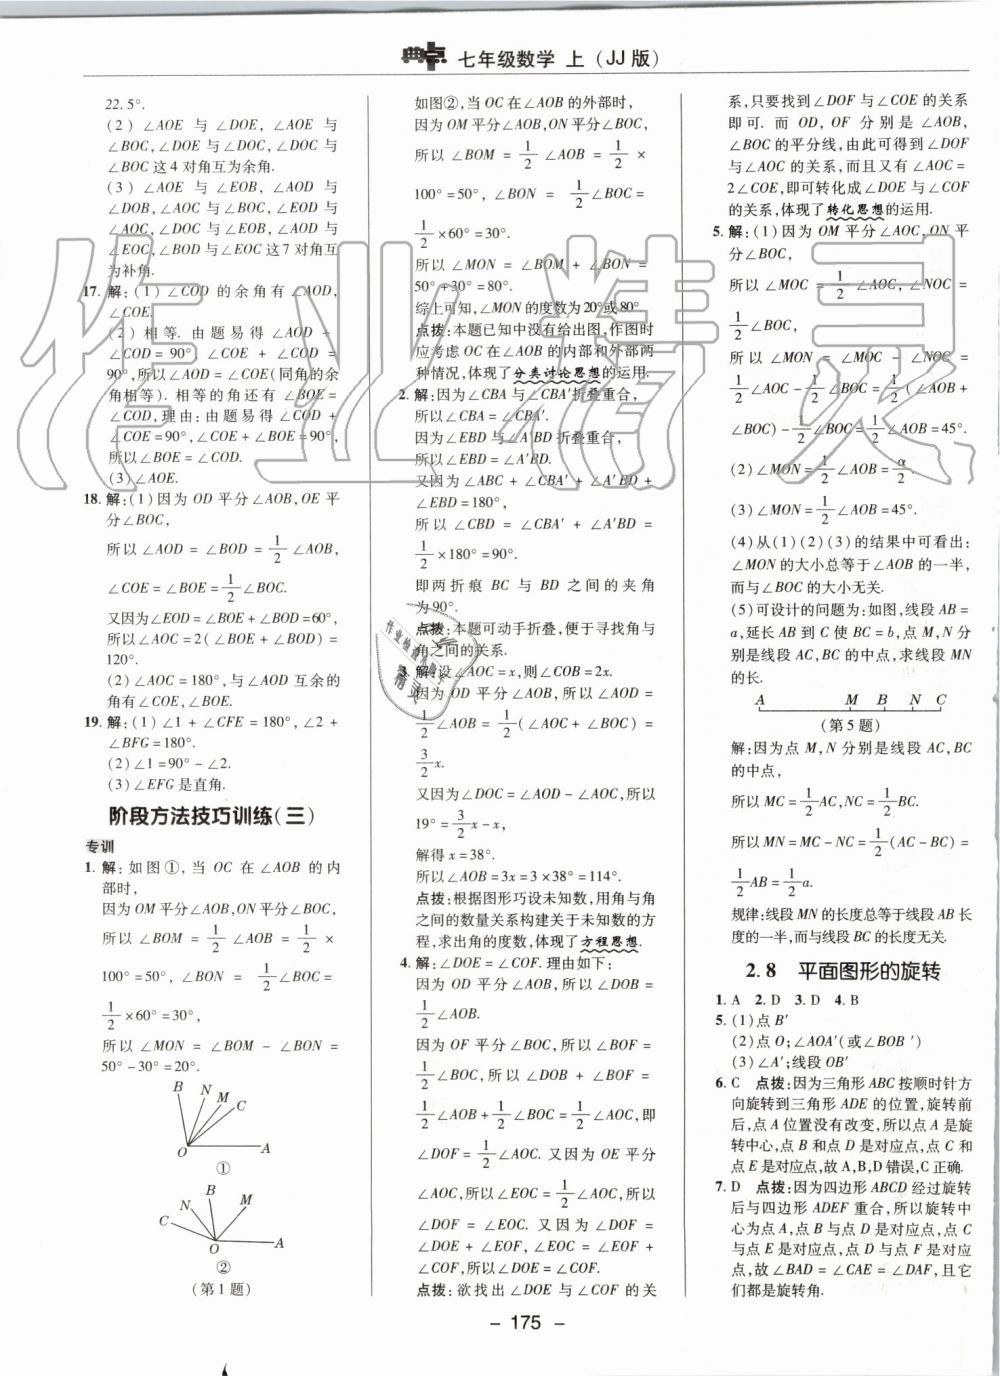 典点 七年级数学 上（JJ版）
22.5°.
(2) ∠AOE 与 ∠DOE, ∠AOE 与
∠BOC, ∠DOE 与 ∠DOC, ∠DOC 与
∠BOC 这 4 对角互为余角.
(3) ∠AOE 与 ∠EOB, ∠AOD 与
∠DOB, ∠AOC 与 ∠BOC, ∠EOD 与
∠AOC, ∠DOC 与 ∠EOB, ∠AOD 与
∠EOC, ∠BOD 与 ∠EOC 这 7 对角互
为补角.
17. 解:(1) ∠COD 的余角有 ∠AOD,
∠COE.
(2) 相等. 由题易得 ∠AOD +
∠COD = 90°, ∠COE + ∠COD =
90°,所以∠AOD = ∠COE(同角的余
角相等). 相等的角还有 ∠BOE =
∠COD,理由:由题易得 ∠COD +
∠COE = 90°, ∠BOE + ∠COE = 90°,
所以∠BOE = ∠COD.
(3) ∠AOE.
18. 解:(1)因为 OD 平分∠AOB,OE 平
分∠BOC,
所以 ∠AOD = ∠BOD = 1/2 ∠AOB,
∠COE = ∠BOE = 1/2 ∠BOC.
又因为∠EOD = ∠BOE + ∠BOD = 60°,
所以∠AOC = 2(∠BOE + ∠BOD) =
120°.
(2) ∠AOC = 180°,与∠AOD 互余的
角有∠COE, ∠BOE.
19. 解:(1) ∠1 + ∠CFE = 180°, ∠2 +
∠BFG = 180°.
(2) ∠1 = 90° - ∠2.
(3) ∠EFG 是直角.
阶段方法技巧训练(三)
专训
1. 解:如图①,当 OC 在 ∠AOB 的内
部时,
因为OM 平分∠AOB,ON 平分∠BOC,
所以 ∠BOM = 1/2 ∠AOB = 1/2 ×
100° = 50°, ∠BON = 1/2 ∠BOC =
1/2 × 60° = 30°,
所以 ∠MON = ∠BOM - ∠BON =
50° - 30° = 20°.
B N M C
O A
①
B M
N
C
O A
②
(第 1 题)
如图②,当 OC 在∠AOB 的外部时,
因为 OM 平分∠AOB,ON 平分∠BOC,
所以 ∠BOM = 1/2 ∠AOB = 1/2 ×
100° = 50°, ∠BON = 1/2 ∠BOC =
1/2 × 60° = 30°.
所以 ∠MON = ∠BOM + ∠BON =
50° + 30° = 80°.
综上可知,∠MON 的度数为20°或80°.
点拨:本题已知中没有给出图,作图时
应考虑 OC 在∠AOB 的内部和外部两
种情况,体现了分类讨论思想的运用.
2. 解:因为∠CBA 与∠CBA′折叠重合,
所以∠CBA = ∠CBA′.
因为∠EBD 与∠A′BD 折叠重合,
所以∠EBD = ∠A′BD.
又因为 ∠ABC + ∠CBA′ + ∠A′BD +
∠EBD = 180°,
所以 ∠CBD = ∠CBA′ + ∠A′BD =
1/2 × 180° = 90°.
即两折痕 BC 与 BD 之间的夹角
为 90°.
点拨:本题可动手折叠,便于寻找角与
角之间的关系.
3. 解:设∠AOC = x,则∠COB = 2x.
因为 OD 平分∠AOB,所以∠AOD =
1/2 ∠AOB = 1/2 (∠AOC + ∠BOC) =
3/2 x.
又因为∠DOC = ∠AOD - ∠AOC,所以
19° = 3/2 x - x.
解得 x = 38°.
所以∠AOB = 3x = 3 × 38° = 114°.
点拨:根据图形巧设未知数,用角与角
之间的数量关系构建关于未知数的方
程,求出角的度数,体现了方程思想.
4. 解:∠DOE = ∠COF. 理由如下:
因为 OD 平分∠AOB,所以∠DOB =
1/2 ∠AOB.
因为 OF 平分∠BOC,所以∠BOF =
1/2 ∠BOC,所以 ∠DOB + ∠BOF =
1/2 ∠AOB + 1/2 ∠BOC = 1/2 ∠AOC,即
∠DOF = 1/2 ∠AOC. 又因为 OE 平分
∠AOC,所以∠EOC = 1/2 ∠AOC,所以
∠DOF = ∠EOC. 又因为 ∠DOF =
∠DOE + ∠EOF, ∠EOC = ∠EOF +
∠COF,所以∠DOE = ∠COF.
点拨:欲找出∠DOE 与∠COF 的关
系,只要找到∠DOF 与∠COE 的关系
即可. 而 OD, OF 分别是 ∠AOB,
∠BOC 的平分线,由此可得到∠DOF
与∠AOC 的关系,而且又有∠AOC =
2∠COE,即可转化成∠DOE 与∠COF
的关系,体现了转化思想的运用.
5. 解:(1)因为 OM 平分∠AOC,ON 平
分∠BOC,
所以∠MOC = 1/2 ∠AOC, ∠NOC =
1/2 ∠BOC,
所以 ∠MON = ∠MOC - ∠NOC =
1/2 ∠AOC - 1/2 ∠BOC = 1/2 (∠AOB +
∠BOC) - 1/2 ∠BOC = 1/2 ∠AOB = 45°.
(2) ∠MON = 1/2 ∠AOB = α/2.
(3) ∠MON = 1/2 ∠AOB = 45°.
(4)从(1)(2)(3)的结果中可看出:
∠MON 的大小总等于∠AOB 的一半,
而与∠BOC 的大小无关.
(5)可设计的问题为:如图,线段 AB =
a,延长 AB 到 C 使 BC = b,点 M,N 分
别是线段 AC,BC 的中点,求线段 MN
的长.
A M B N C
(第 5 题)
解:因为点 M,N 分别是线段 AC,BC
的中点,
所以 MC = 1/2 AC,NC = 1/2 BC.
所以 MN = MC - NC = 1/2 (AC - BC) =
1/2 AB = 1/2 a.
规律:线段 MN 的长度总等于线段 AB 长
度的一半,而与线段 BC 的长度无关.
2.8 平面图形的旋转
1. A 2. D 3. D 4. B
5. (1)点 B′
(2)点 O;∠AOA′(或∠BOB′)
(3) ∠A′;线段 OB′
6. C 点拨:因为三角形 ABC 按顺时针方
向旋转到三角形 ADE 的位置,旋转前
后,点 A 位置没有改变,所以点 A 是旋
转中心,点 B 和点 D 是对应点,点 C 和
点 E 是对应点,故 A,B,D 错误,C 正确.
7. D 点拨:因为四边形 ABCD 经过旋转
后与四边形 ADEF 重合,所以旋转中
心为点 A,点 B 与点 D 是对应点,点 C
与点 E 是对应点,点 D 与点 F 是对应
点,故∠BAD = ∠CAE = ∠DAF,且它
们都是旋转角.
- 175 -
作业精灵